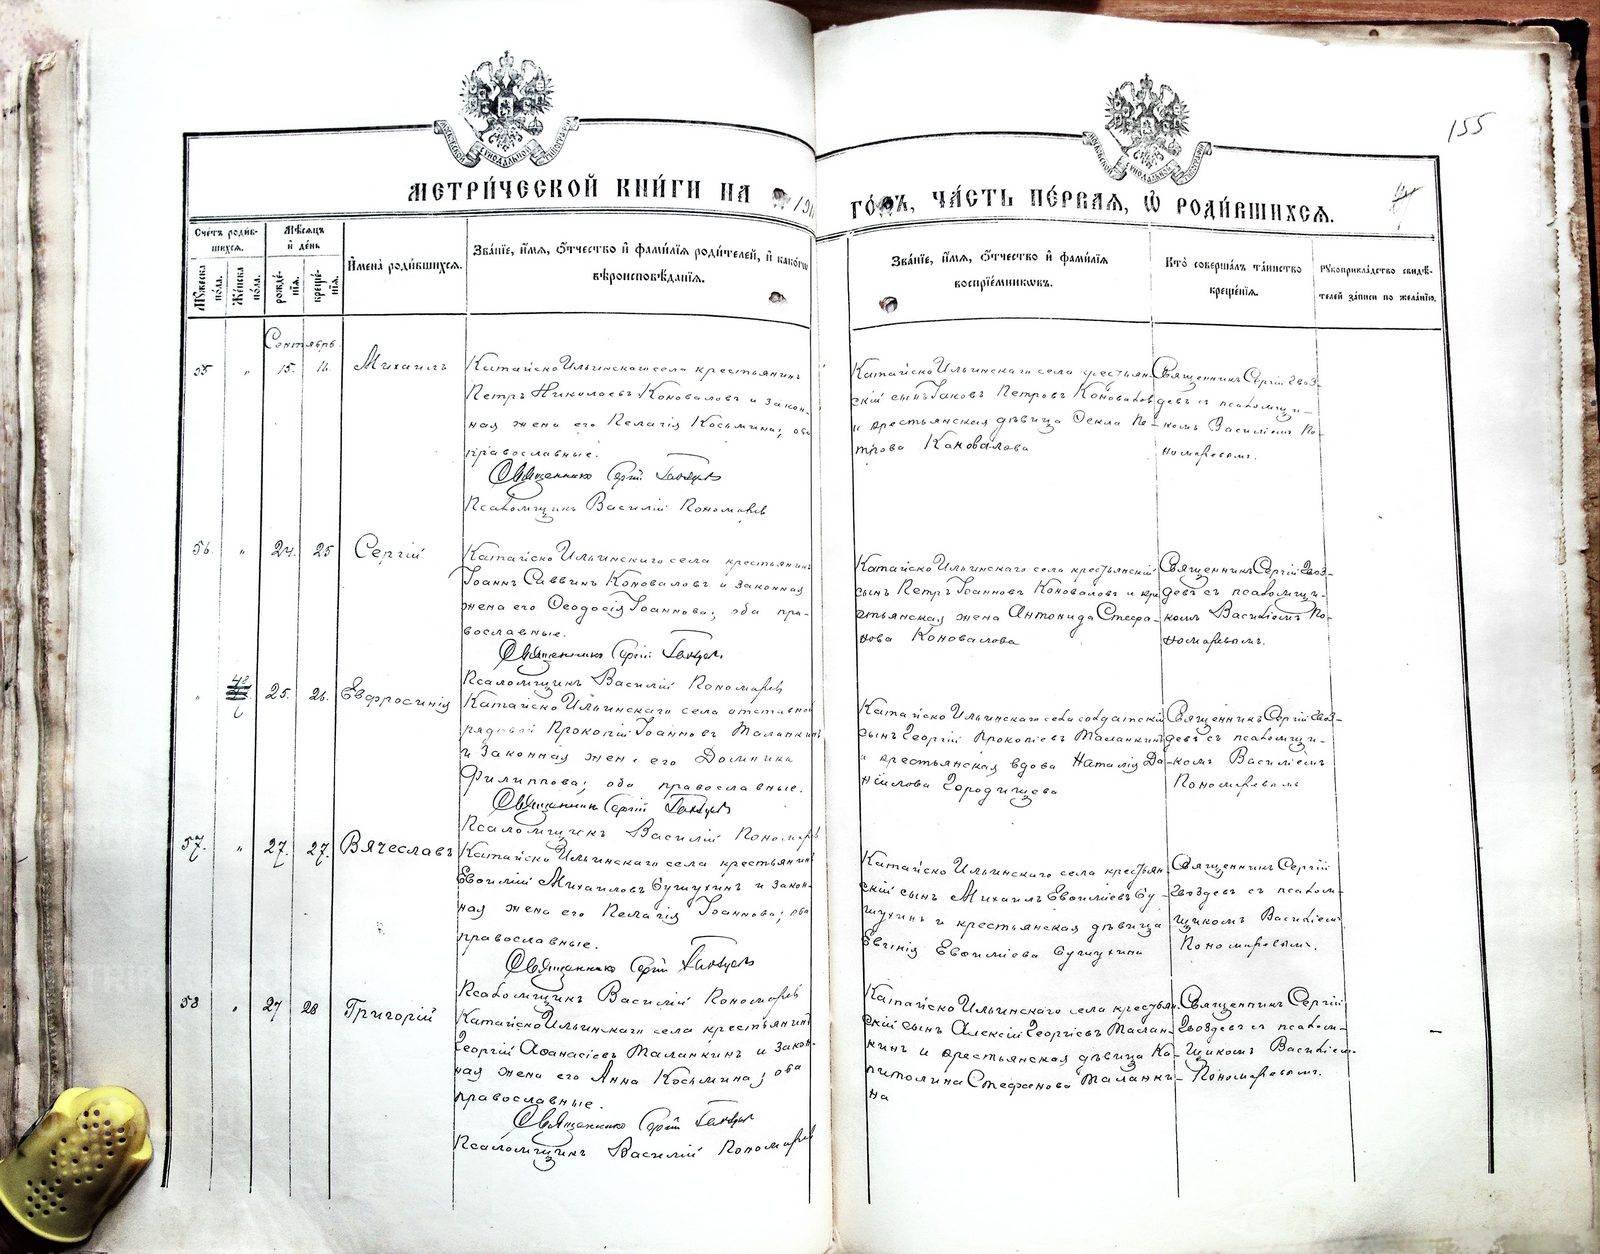 155
МОСКОВСКОЙ СѴНОДАЛЬНОЙ ТИПОГРАФІИ
МЕТРИ́ЧЕСКОЙ КНИ́ГИ НА 191
ГО́ДЪ, ЧА́СТЬ ПЕ́РВАЯ, Ѽ РОДИ́ВШИХСЯ.
Сче́тъ роди́вшихся.
Му́жеска по́ла.
Же́нска по́ла.
Мѣ́сяцъ и҆ де́нь
рожде́нїя.
креще́нїя.
И҆мена̀ роди́вшихся.
Зва́нїе, и҆́мя, ѻ҆́тчество и҆ фами́лїя роди́телей, и҆ како́гѡ
вѣроисповѣ́данїя.
Зва́нїе, и҆́мя, ѻ҆́тчество и҆ фами́лїя
воспрїе́мникѡвъ.
Кто̀ соверша́лъ та́инство
креще́нїя.
Рꙋкоприкла́дство свидѣ́-
телей за́писи по жела́нїю.
Сентябрь
55 " 15. 16. Михаилъ
Катайско Ильинскаго села крестьянинъ
Петръ Николаевъ Коноваловъ и закон-
ная жена его Пелагія Косьмина; оба
православные.
Священникъ Сергій Гвоздевъ
Псаломщикъ Василій Пономаревъ
Катайско Ильинскаго села крестьян-
скій сынъ Іаковъ Петровъ Коноваловъ
и крестьянская дѣвица Ѳекла Пе-
трова Коновалова
Священникъ Сергій Гвоз-
девъ съ псаломщи-
комъ Василіемъ По-
номаревымъ.
56. " 24. 25 Сергій
Катайско Ильинскаго села крестьянинъ
Іоаннъ Саввинъ Коноваловъ и законная
жена его Ѳеодосія Іоаннова; оба пра-
вославные.
Священникъ Сергій Гвоздевъ
Псаломщикъ Василій Пономаревъ
Катайско Ильинскаго села крестьянскій
сынъ Петръ Іоанновъ Коноваловъ и кре
стьянская жена Антонида Стефа-
нова Коновалова
Священникъ Сергій Гвоз-
девъ съ псаломщи-
комъ Василіемъ По-
номаревымъ.
" 25. 26. Евфросинія
Катайско Ильинскаго села отставной
рядовой Прокопій Іоанновъ Маланкинъ
и законная жена его Домника
Филиппова; оба православные.
Священникъ Сергій Гвоздевъ
Псаломщикъ Василій Пономаревъ
Катайско Ильинскаго села солдатскій
сынъ Георгій Прокопіевъ Маланкинъ
и крестьянская вдова Наталія Да-
ніилова Городищева
Священникъ Сергій Гвоз-
девъ съ псаломщи-
комъ Василіемъ
Пономаревымъ
57. " 27. 27. Вячеславъ
Катайско Ильинскаго села крестьянинъ
Евѳимій Михаиловъ и закон-
ная жена его Пелагія Іоаннова; оба
православные.
Священникъ Сергій Гвоздевъ
Псаломщикъ Василій Пономаревъ
Катайско Ильинскаго села крестьян-
скій сынъ Михаилъ Евѳиміевъ
и крестьянская дѣвица
Евгенія Евѳиміева
Священникъ Сергій
Гвоздевъ съ псалом-
щикомъ Василіемъ
Пономаревымъ.
58 " 27 28 Григорій
Катайско Ильинскаго села крестьянинъ
Георгій Аѳанасіевъ Маланкинъ и закон-
ная жена его Анна Косьмина; оба
православные.
Священникъ Сергій Гвоздевъ
Псаломщикъ Василій Пономаревъ
Катайско Ильинскаго села крестьян
скій сынъ Алексій Георгіевъ Малан-
кинъ и крестьянская дѣвица Ка-
питолина Стефанова Маланки-
на
Священникъ Сергій
Гвоздевъ съ псалом-
щикомъ Василіемъ
Пономаревымъ.